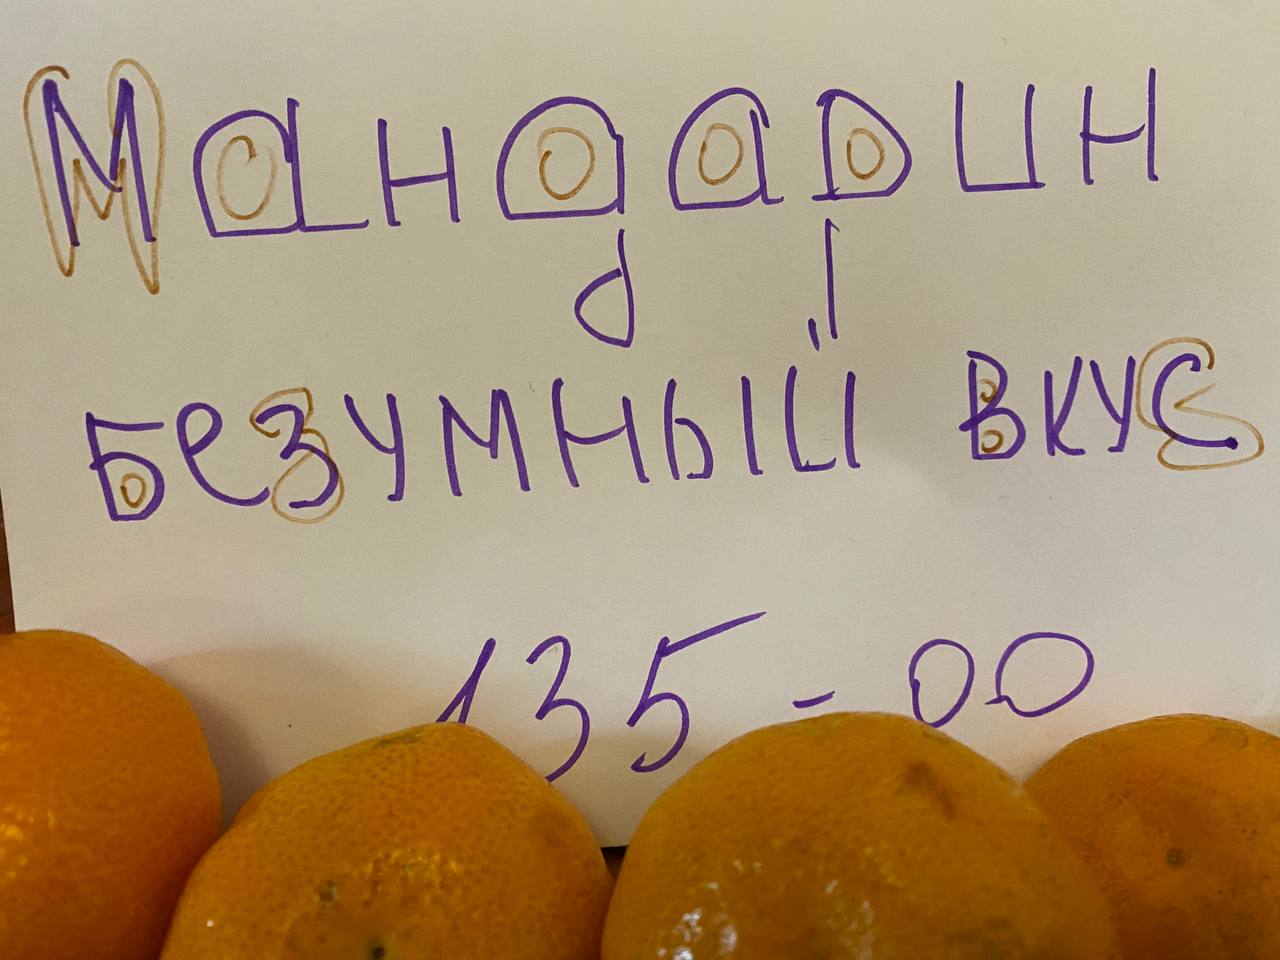 Мандарин
Безумный вкус
135-00